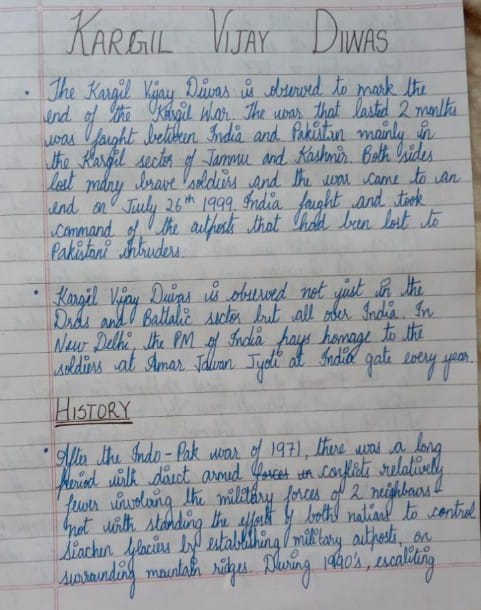 KARGIL VIJAY DIWAS
• The Kargil Vijay Diwas is observed to mark the
end of the Kargil War. The war that lasted 2 months
was faught between India and Pakistan mainly in
the Kargil sector of Jammu and Kashmir. Both sides
lost many brave soldiers and the war came to an
end on July 26th 1999. India faught and took
command of the outposts that had been lost to
Pakistani intruders.
• Kargil Vijay Diwas is observed not just in the
Dras and Battalic sector but all over India. In
New Delhi, the PM of India pays homage to the
soldiers at Amar Jawan Jyoti at India gate every year.
HISTORY
• After the Indo-Pak war of 1971, there was a long
period with direct armed forces in conflicts relatively
fewer involving the military forces of 2 neighbours -
not with standing the efforts of both nations to control
Siachen Glaciers by establishing military outposts, on
surrounding mountain ridges. During 1990's, escaliting